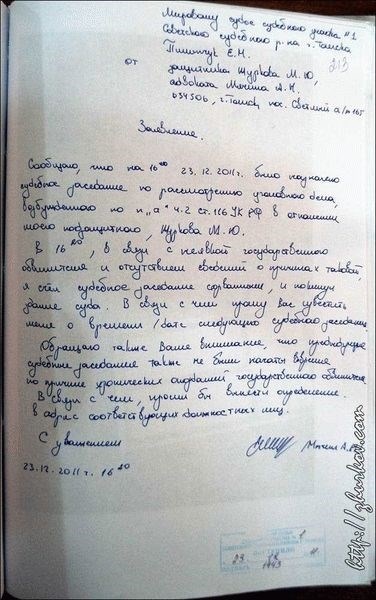 Мировому судье судебного участка №1
Советского судебного р-на г. Томска
Пимчук Е.Н.
213
от
защитника Журкова М.Ю,
адвоката Мячина А.Н.
634506, г. Томск, пос. Светлый а/я 165
Заявление.
Сообщаю, что на 16 00 23.12.2011г. было назначено
судебное заседание по рассмотрению уголовного дела,
возбужденного по п „а“ ч.2 ст.116 УК РФ в отношении
моего подзащитного, Журкова М.Ю.
В 16 20, в связи с неявкой государственного
обвинителя и отсутствием сведений о причинах таковой,
я счел судебное заседание сорванным, и покинул
здание суда. В связи с чем прошу вас известить
меня о времени /дате следующего судебного заседания
Обращаю также Ваше внимание, что предыдущие
судебные заседания также не были начаты вовремя
по причине хронических опозданий государственного обвинителя.
В связи с чем, просил бы вынести определение
в адрес соответствующих должностных лиц.
С уважением
Мячин А.Н.
23.12.2011г. 16 20
http://zhurkov.com